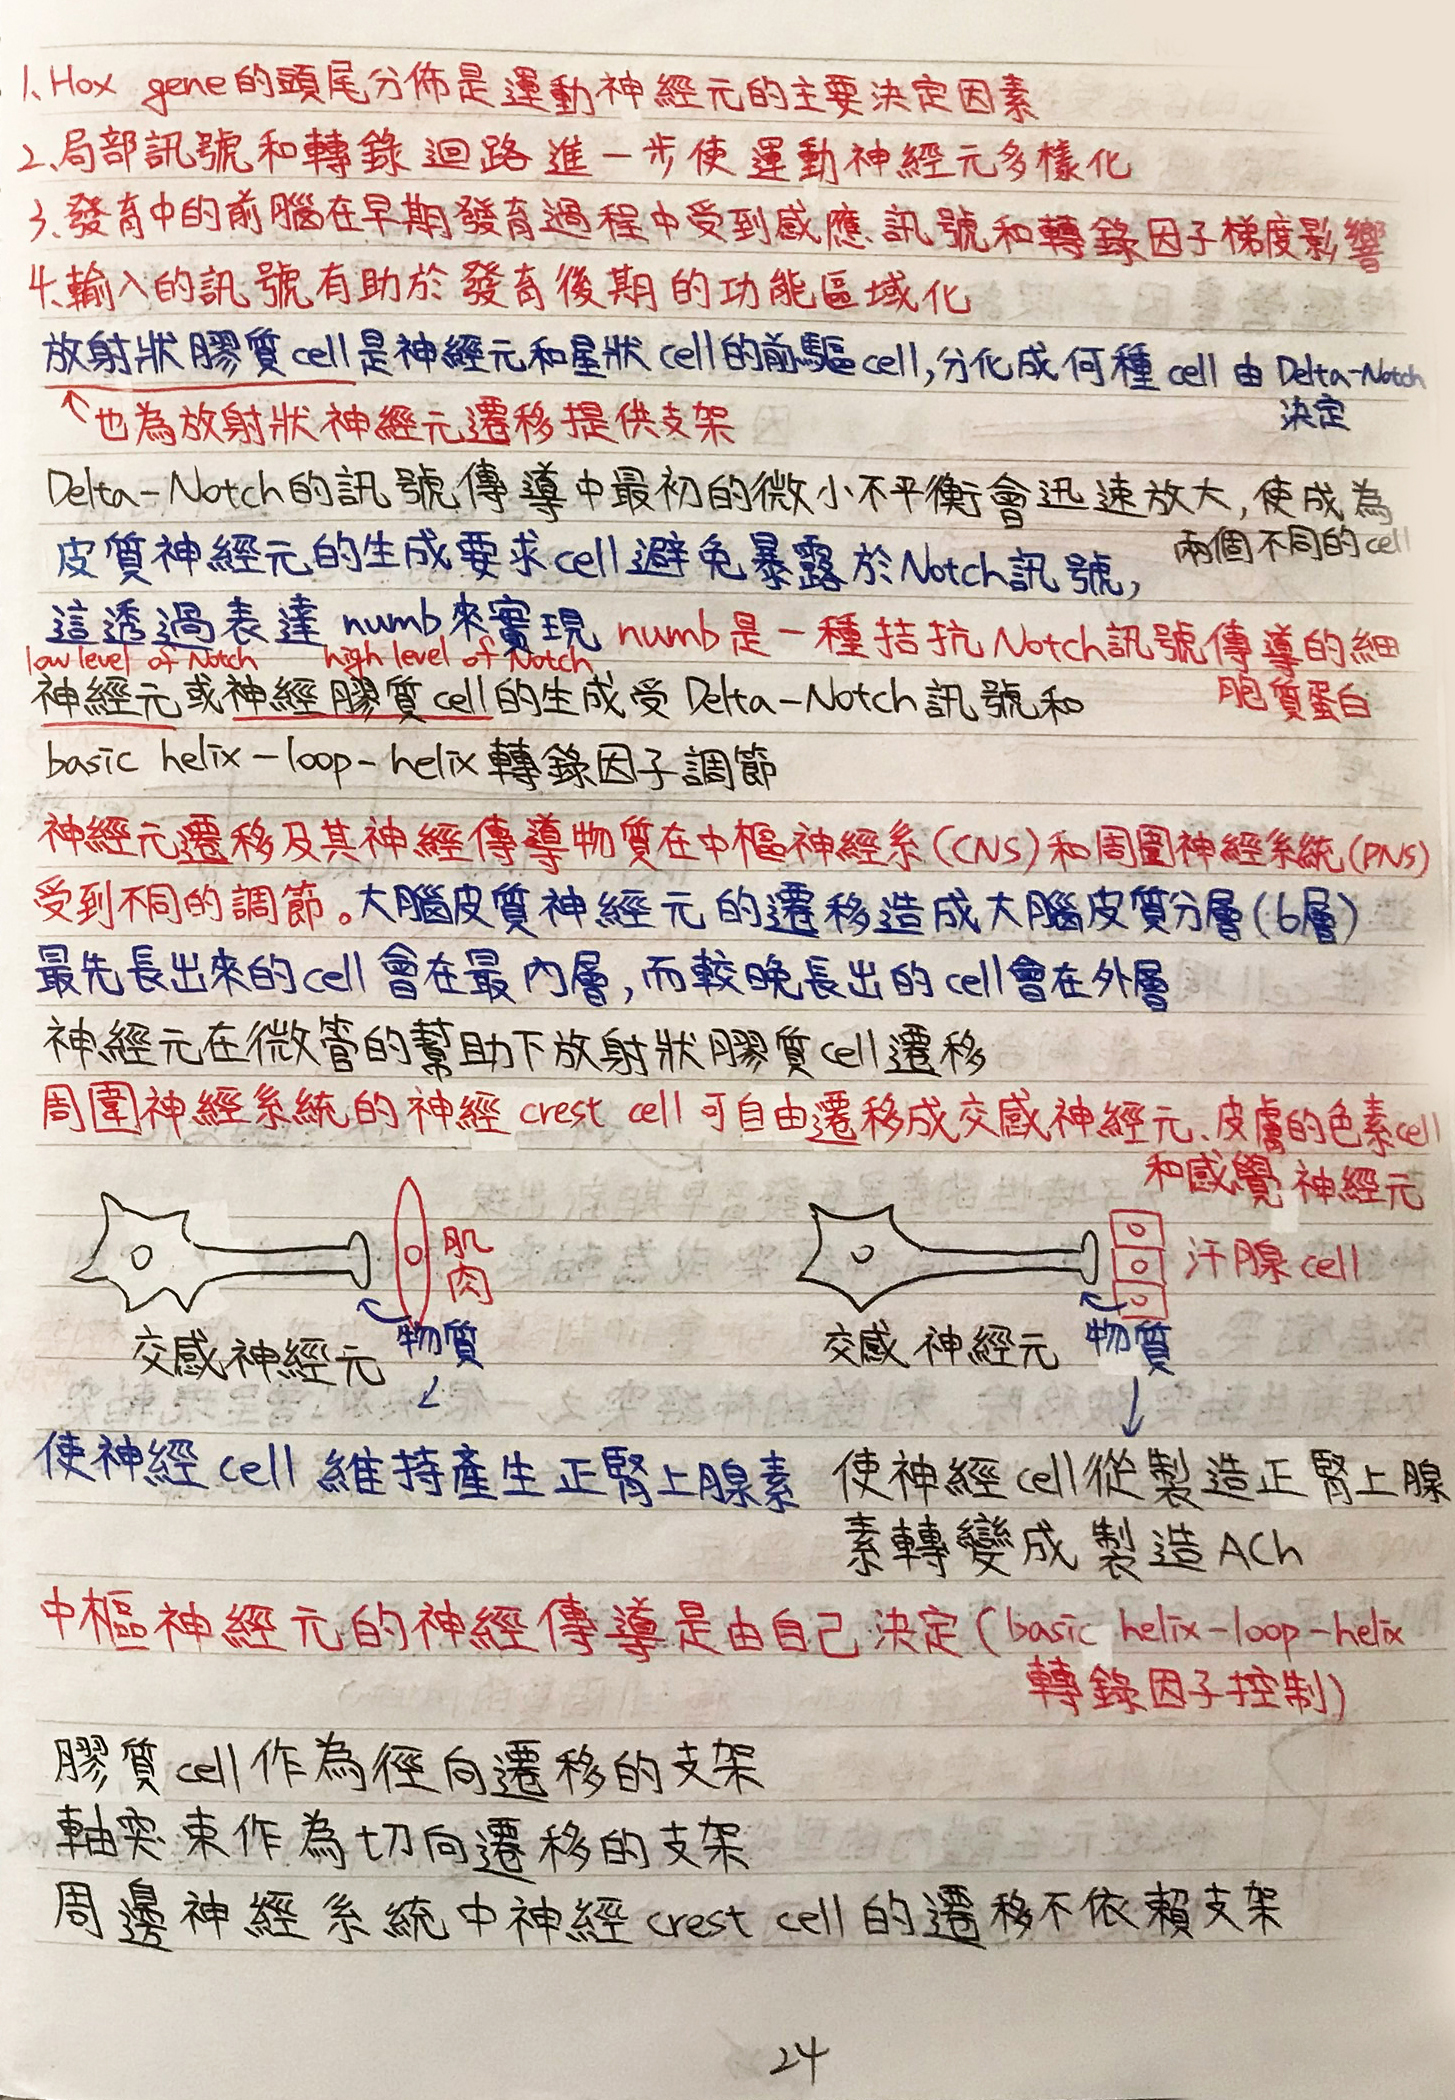 1、Hox gene的頭尾分佈是運動神經元的主要決定因素
2、局部訊號和轉錄迴路進一步使運動神經元多樣化
3、發育中的前腦在早期發育過程中受到感應訊號和轉錄因子梯度影響
4、輸入的訊號有助於發育後期的功能區域化
放射狀膠質cell是神經元和星狀cell的前驅cell,分化成何種cell由Delta-Notch
決定
↑也為放射狀神經元遷移提供支架
Delta-Notch的訊號傳導中最初的微小不平衡會迅速放大,使成為
兩個不同的cell
皮質神經元的生成要求cell避免暴露於Notch訊號,
這透過表達numb來實現 numb是一種拮抗Notch訊號傳導的細
胞質蛋白
low level of Notch high level of Notch
神經元或神經膠質cell的生成受Delta-Notch訊號和
basic helix-loop-helix轉錄因子調節
神經元遷移及其神經傳導物質在中樞神經系(CNS)和周圍神經系統(PNS)
受到不同的調節。大腦皮質神經元的遷移造成大腦皮質分層(6層)
最先長出來的cell會在最內層,而較晚長出的cell會在外層
神經元在微管的幫助下放射狀膠質cell遷移
周圍神經系統的神經crest cell可自由遷移成交感神經元、皮膚的色素cell
和感覺神經元
肌肉
汗腺cell
交感神經元 物質
交感神經元 物質
使神經cell維持產生正腎上腺素
使神經cell從製造正腎上腺
素轉變成製造ACh
中樞神經元的神經傳導是由自己決定(basic helix-loop-helix
轉錄因子控制)
膠質cell作為徑向遷移的支架
軸突束作為切向遷移的支架
周邊神經系統中神經crest cell的遷移不依賴支架
24